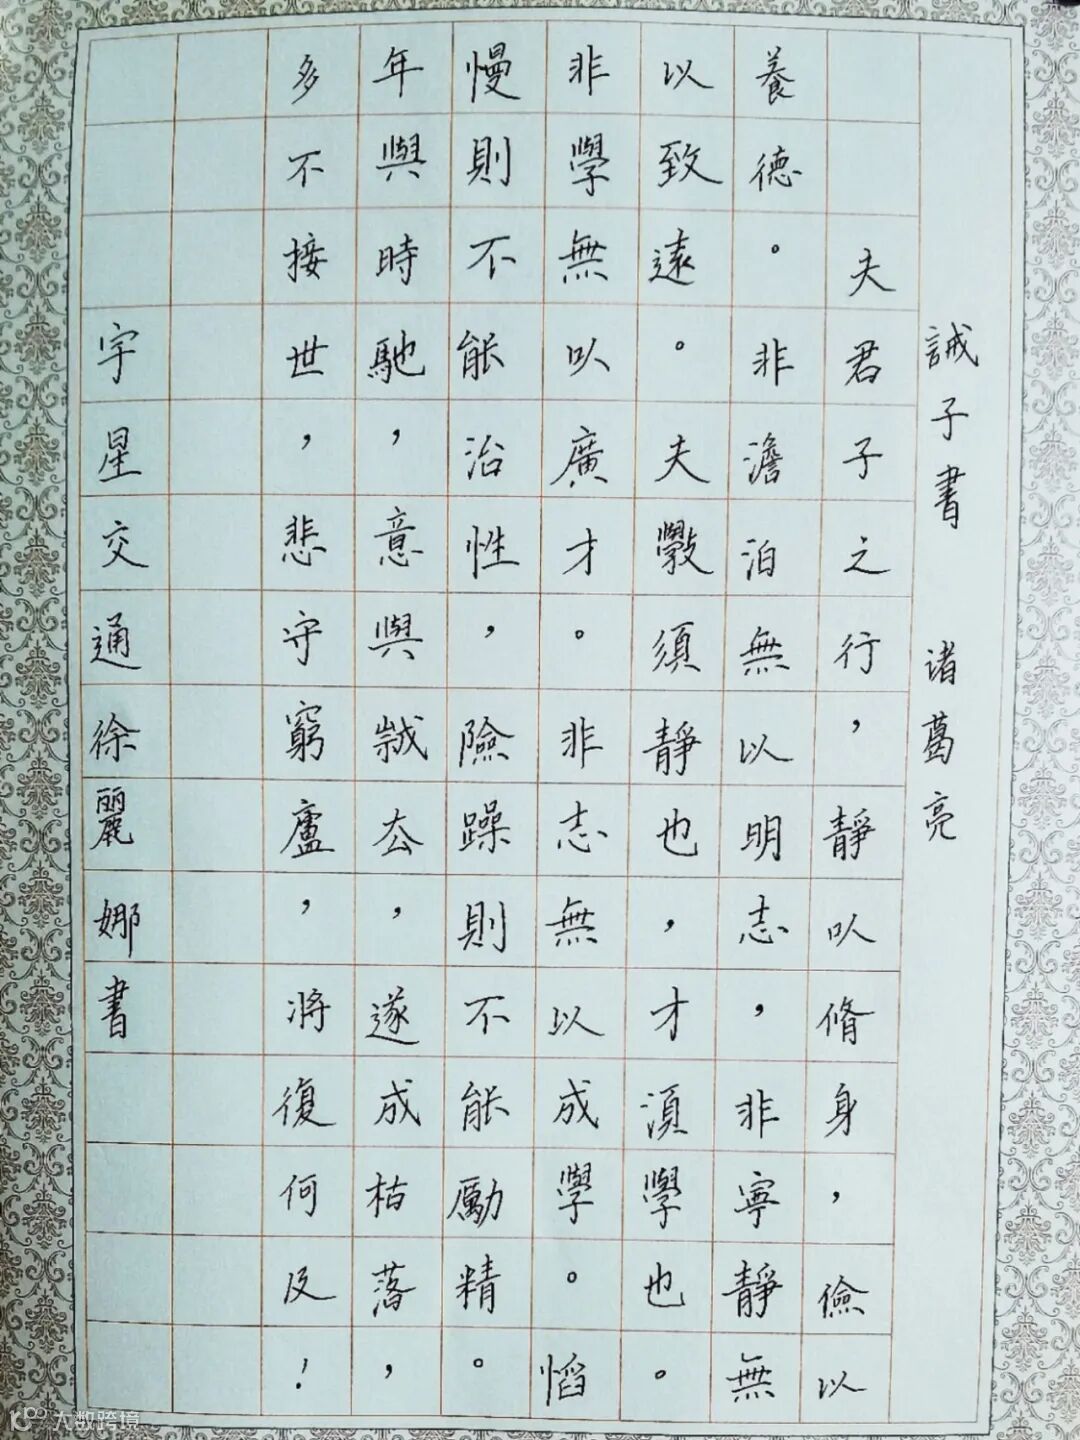 誡子書 诸葛亮
夫君子之行，靜以脩身，儉以
養德。非澹泊無以明志，非寧靜無
以致遠。夫斅須靜也，才湏學也。
非學無以廣才。非志無以成學。慆
慢則不能治性，險躁則不能勵精。
年與時馳，意與歲厺，遂成枯落，
多不接世，悲守窮廬，將復何及！
宇星交通徐麗娜書
大数跨境